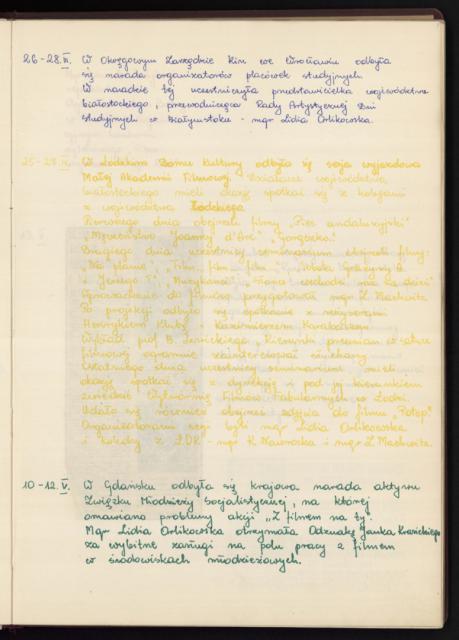 26-28.II. W Okręgowym Zarządzie Kin we Wrocławiu odbyła
się narada organizatorów placówek studyjnych.
W naradzie tej uczestniczyła przedstawicielka województwa
białostockiego, przewodnicząca Rady Artystycznej Kin
Studyjnych w Białymstoku - mgr Lidia Orlikowska.
25-28. W Łódzkim Domu Kultury odbyła się sesja wyjazdowa
Małej Akademii Filmowej. Działacze województwa
białostockiego mieli okazję spotkać się z kolegami
z województwa Łódzkiego.
Pierwszego dnia obejrzeli filmy „Pies andaluzyjski"
„Męczeństwo Joanny d'Arc"
Drugiego dnia uczestnicy seminarium obejrzeli filmy:
„Na planie", „Film, film, film", „Sobota Grażyny A.
i Jerzego T.", „Muzykanci",
mgr Z. Machwitz
Po projekcji odbyło się spotkanie z reżyserami
Henrykiem Klubą i Kazimierzem Karabaszem.
Wykład prof. B. „Kierunki przemian w sztuce
filmowej ogromnie zainteresował słuchaczy.
Ostatniego dnia uczestnicy seminarium mieli
okazję spotkać się z dyrekcją i pod jej kierunkiem
zwiedzić Wytwórnię Filmów Fabularnych w Łodzi.
Udało się również obejrzeć zdjęcia do filmu „Potop".
Organizatorami sesji byli mgr Lidia Orlikowska
i koledzy z ŁDK - mgr K. Nawrocka i mgr Z. Machwitz.
10-12.V. W Gdańsku odbyła się krajowa narada aktywu
Związku Młodzieży Socjalistycznej, na której
omawiano problemy akcji „Z filmem na ty".
Mgr Lidia Orlikowska otrzymała Odznakę Janka Krasickiego
za wybitne zasługi na polu pracy z filmem
w środowiskach młodzieżowych.